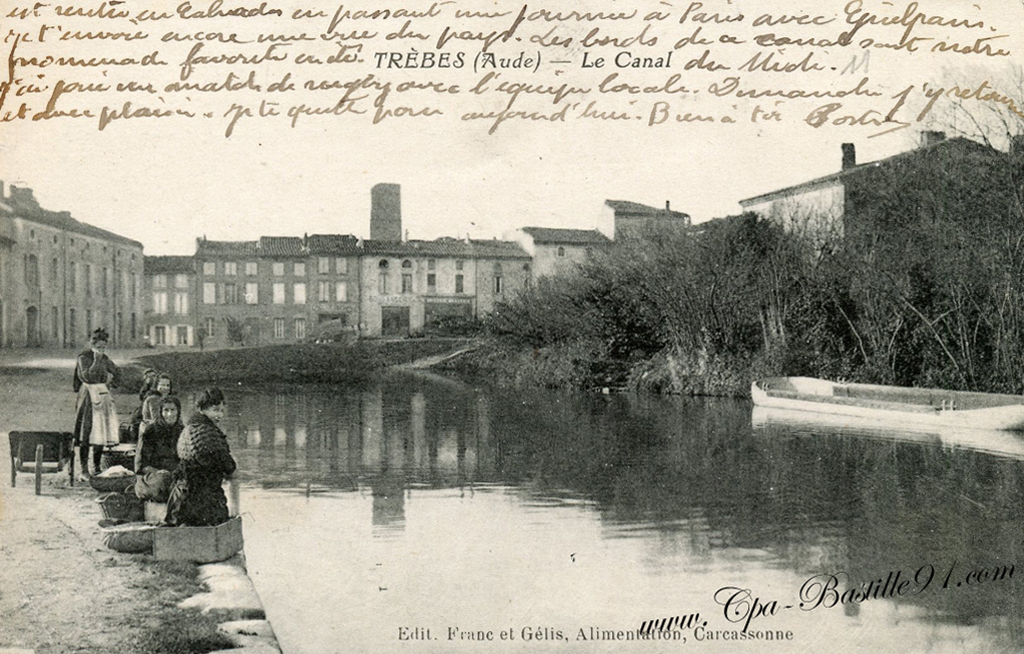 est rentré en Calvados en passant une journée à Paris avec
je t'envoie encore une vue du pays. Les bords de ce canal sont notre
promenade favorite en été. TRÈBES (Aude) — Le Canal du Midi.
j'ai joué un match de rugby avec l'équipe locale. Dimanche j'y retourne
et avec plaisir. je te quitte pour aujourd'hui. Bien à toi
www.Cpa-Bastille91.com
Edit. Franc et Gélis, Alimentation, Carcassonne